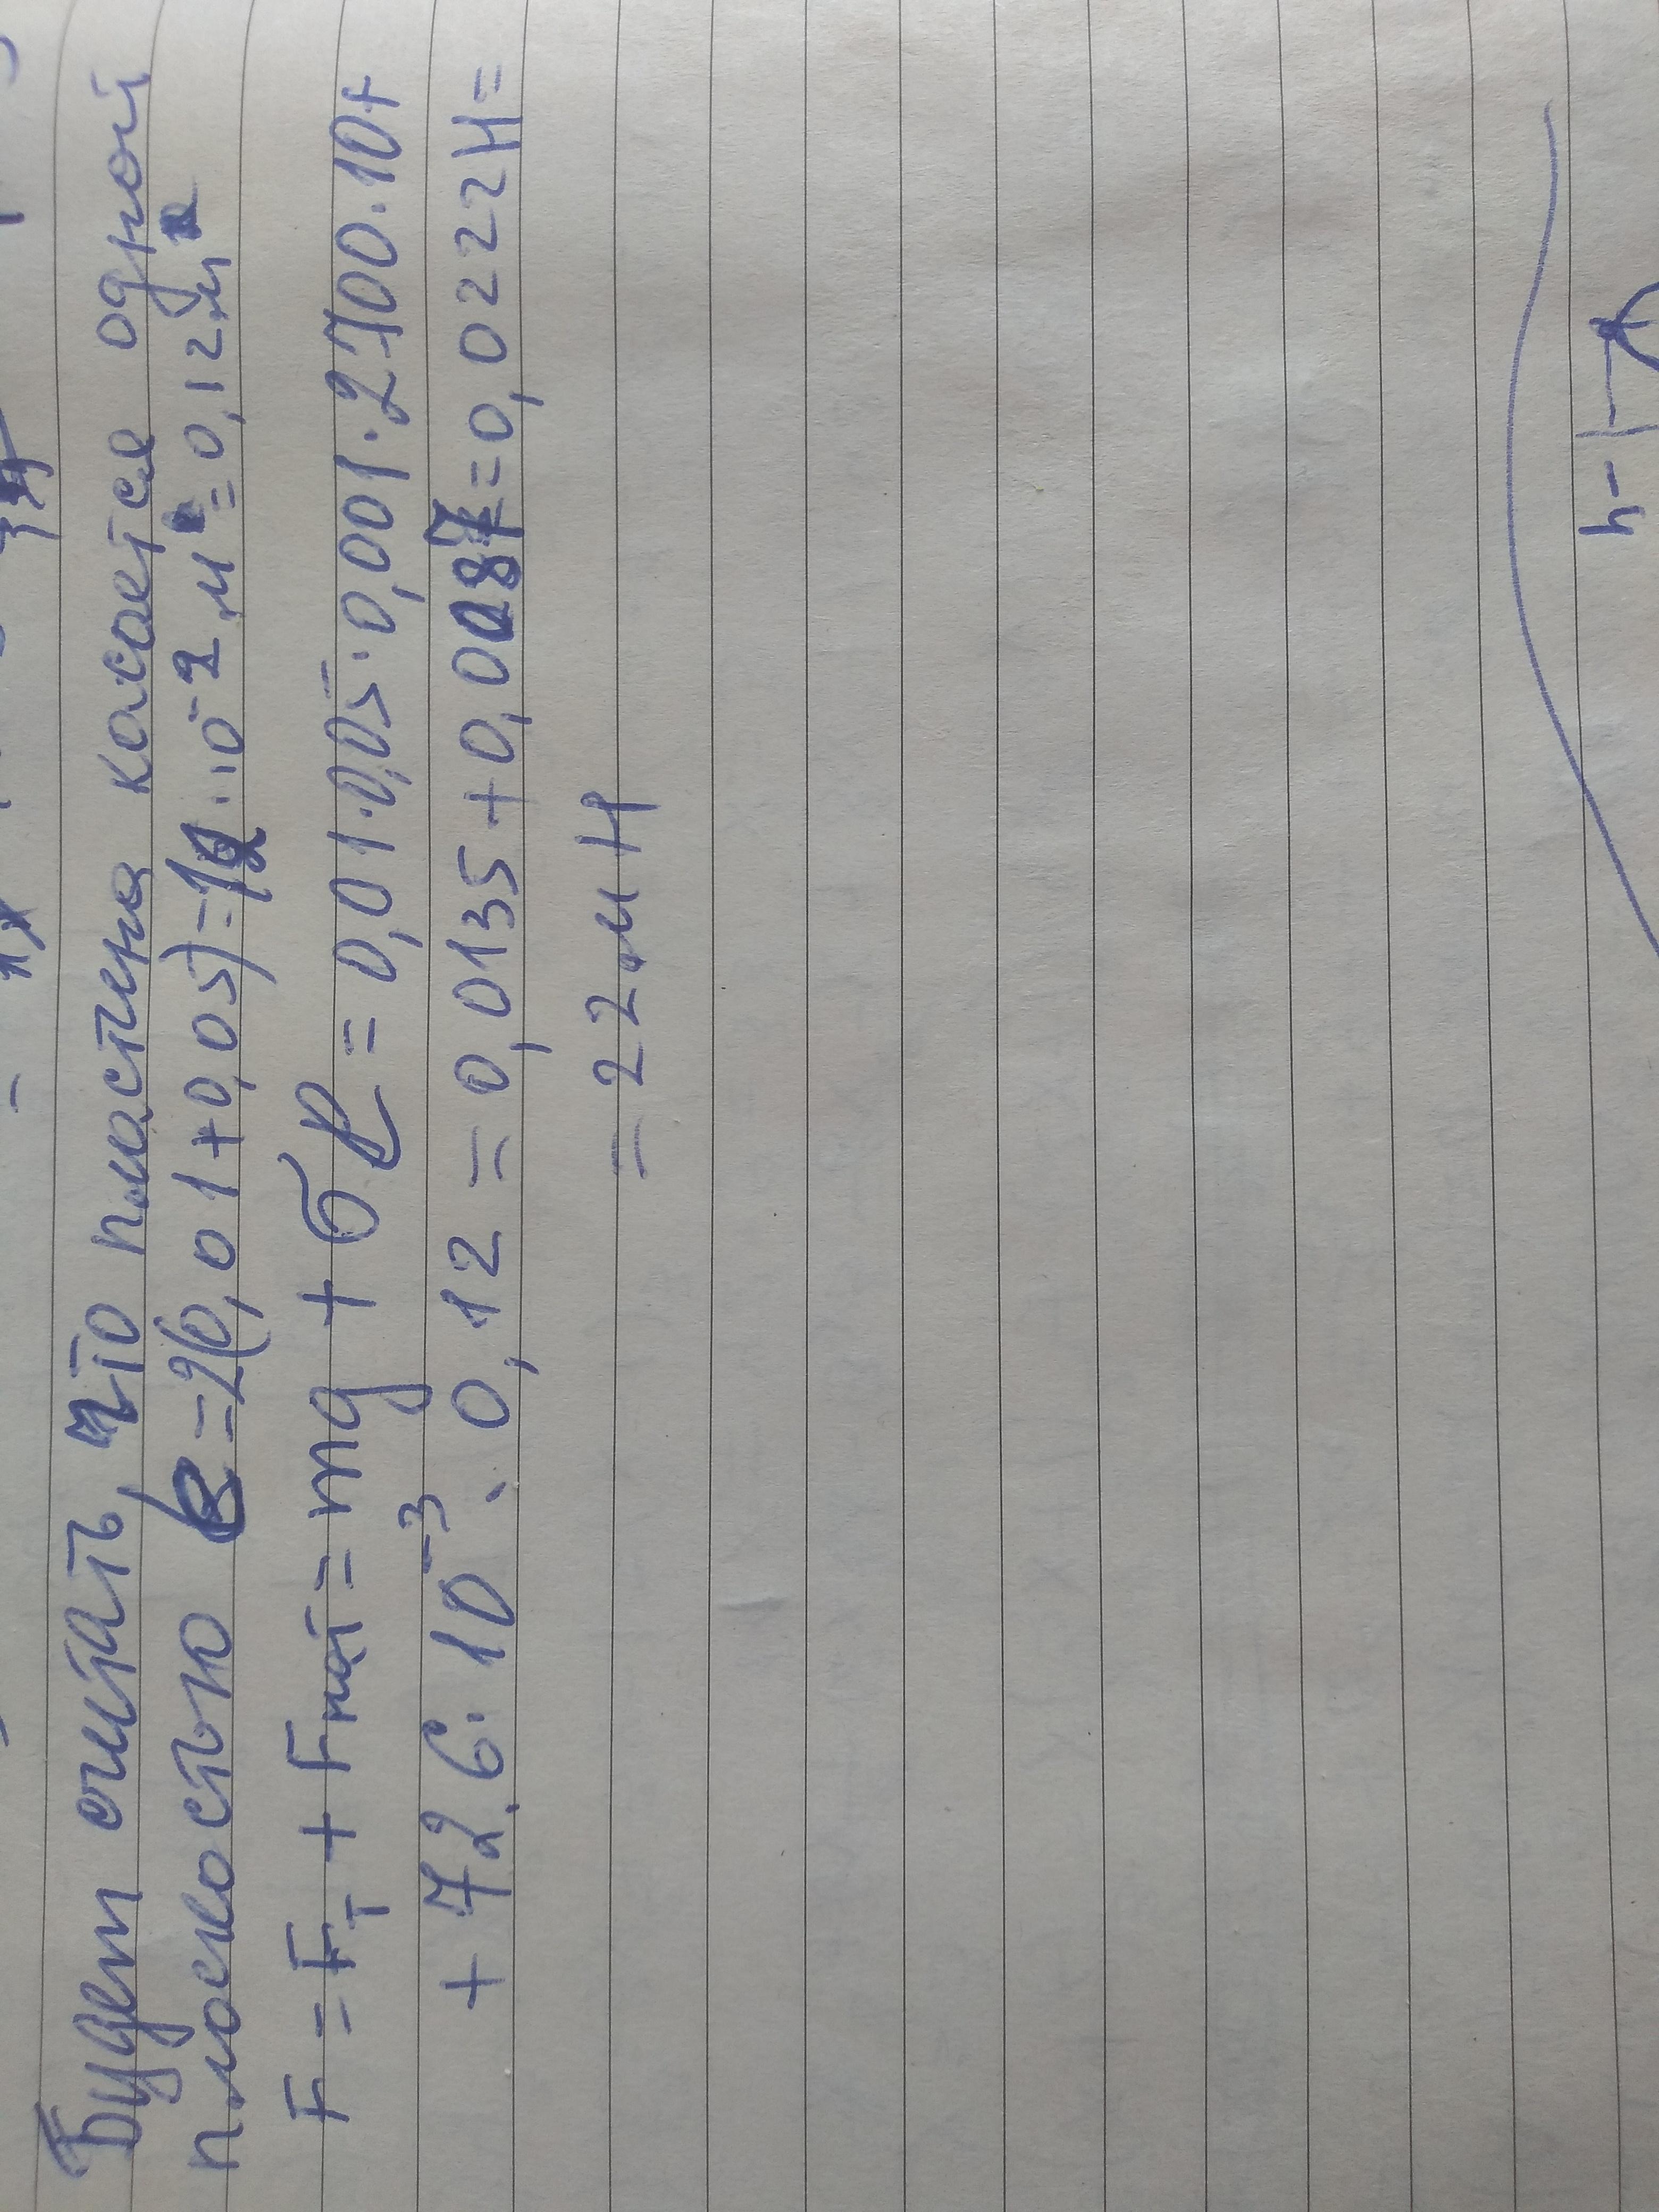 Будем считать, что пластина касается одной
плоскостью ℓ=2(0,01+0,05)=12·10⁻² м = 0,12м
F = Fт + Fнат = mg + σℓ = 0,01·0,05·0,001·2700·10+
+ 72.6·10⁻³·0,12 = 0,0135+0,0087=0,0222Н=
= 22мН
h-